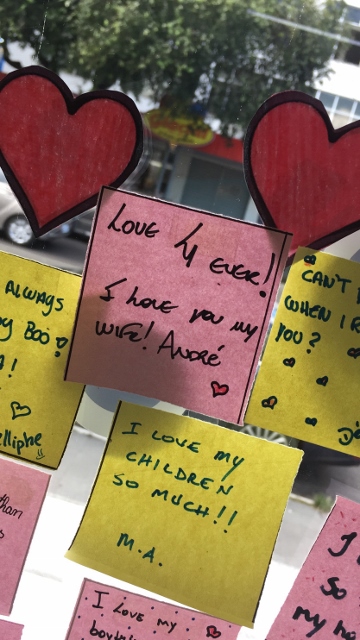 Love 4 ever!
I love you my
wife! André
always
my Boo
!
elliphe
Can't
when I
you?
I love my
children
so much!!
M.A.
than
I love my
I
So
my